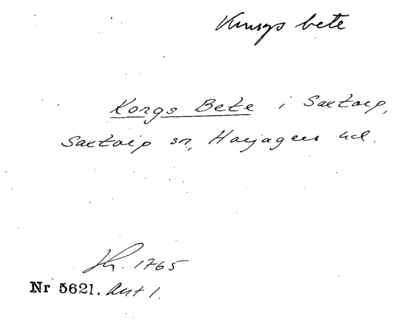 Kungs bete
Korgs Bete i Saxtorp,
Saxtorp sn, Harjagers hd.
Jh. 1765
Nr 5621. Akt 1.